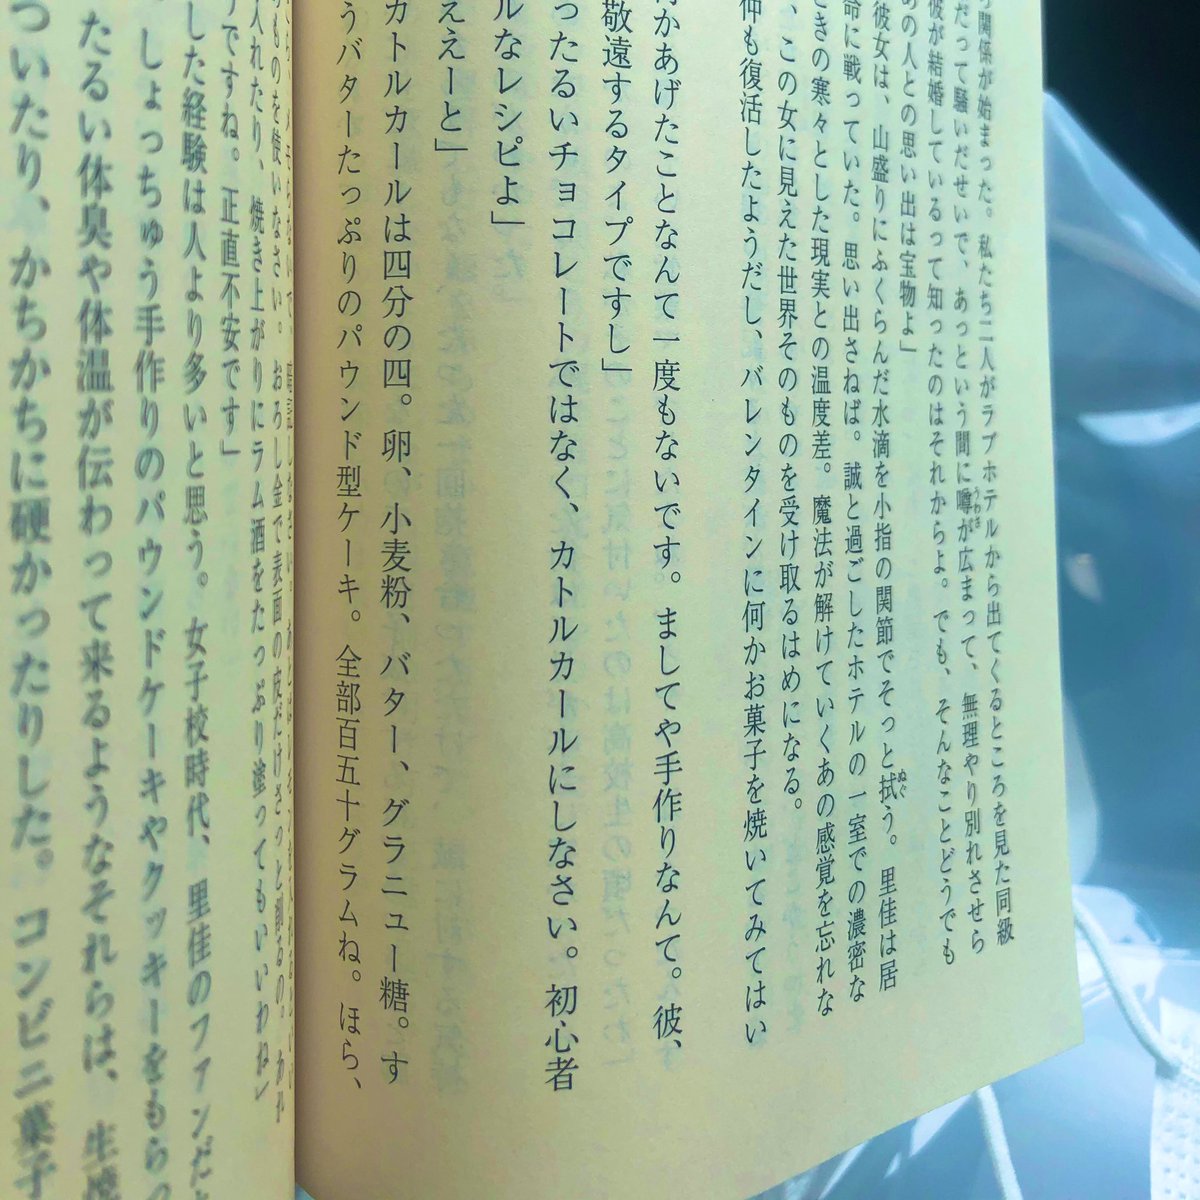 関係が始まった。私たち二人がラブホテルから出てくるところを見た同級
だって騒いだせいで、あっという間に噂が広まって、無理やり別れさせら
彼が結婚しているって知ったのはそれからよ。でも、そんなことどうでも
あの人との思い出は宝物よ」
彼女は、山盛りにふくらんだ水滴を小指の関節でそっと拭う。里佳は居
命に戦っていた。思い出さねば。誠と過ごしたホテルの一室での濃密な
ときの寒々とした現実との温度差。魔法が解けていくあの感覚を忘れな
、この女に見えた世界そのものを受け取るはめになる。
仲も復活したようだし、バレンタインに何かお菓子を焼いてみてはい
かあげたことなんて一度もないです。ましてや手作りなんて。彼、
敬遠するタイプですし」
ったるいチョコレートではなく、カトルカールにしなさい。初心者
ルなレシピよ」
ええーと」
カトルカールは四分の四。卵、小麦粉、バター、グラニュー糖。す
うバターたっぷりのパウンド型ケーキ。全部百五十グラムね。ほら、
ものを使いなさい。おろし金で表面の皮だけさっと削るの。あれ
入れたり、焼き上がりにラム酒をたっぷり塗ってもいいわね」
ですね。正直不安です」
した経験は人より多いと思う。女子校時代、里佳のファンだ
しょっちゅう手作りのパウンドケーキやクッキーをもら
たる い体臭や体温が伝わって来るようなそれらは、生焼
ついたり、かちかちに硬かったりした。コンビニ菓子